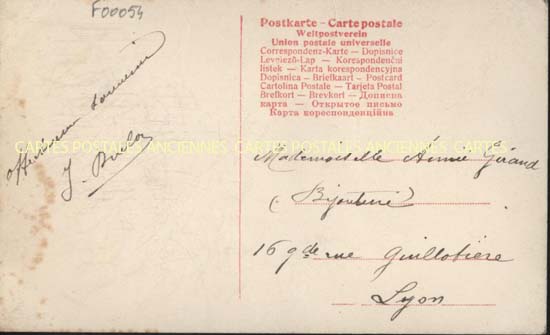 F00054
Postkarte – Carte postale
Weltpostverein
Union postale universelle
Correspondenz-Karte — Dopisnice
Levelező-Lap — Korespondenční
listek — Karta korespondencyjna
Dopisnica — Briefkaart — Postcard
Cartolina Postale — Tarjeta Postal
Brefkort — Brevkort — Дописна
карта — Открытое письмо
Карта кореспонденційна
souvenir
J.
CARTES POSTALES ANCIENNES CARTES POSTALES ANCIENNES CARTES
Mademoiselle Aimée Giraud
(Bijouterie)
16 gde rue Guillotière
Lyon